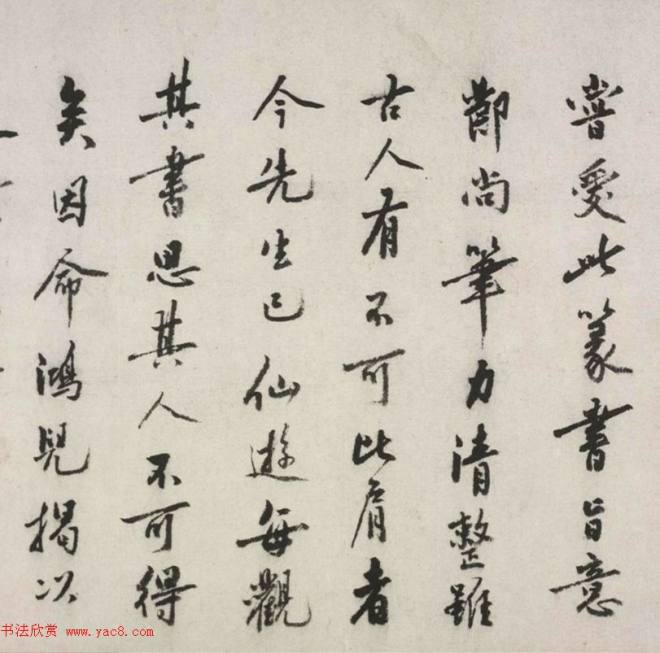 嘗愛此篆書旨意
鄙尚筆力清整雖
古人有不可比肩者
今先生已仙遊每觀
其書思其人不可得
矣因命鴻兒揭以
书法欣赏 www.yac8.com